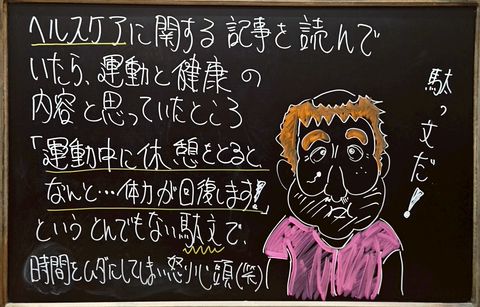 ヘルスケアに関する記事を読んで
いたら、運動と健康の
内容と思っていたところ
「運動中に休憩をとると、
なんと…体力が回復します!」
というとんでもない駄文で、
時間をムダにしてしまい怒り心頭(笑)
駄っ文だ!